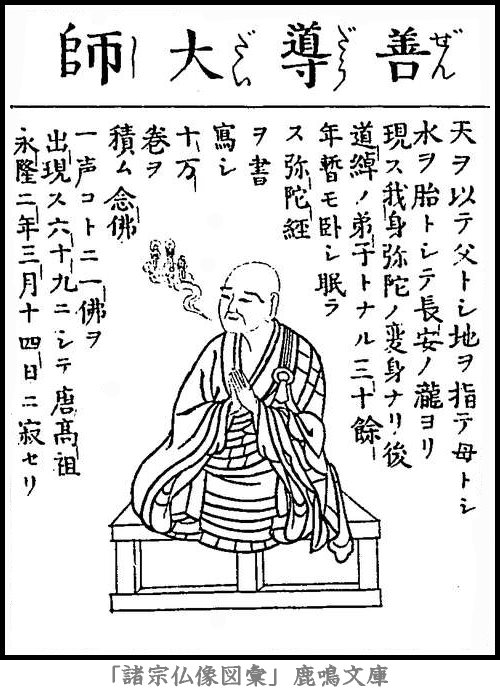 善導大師
ぜんだうだいし
天ヲ以テ父トシ地ヲ指テ母トシ
水ヲ胎トシテ長安ノ瀧ヨリ
現ス我身弥陀ノ変身ナリ後
道綽ノ弟子トナル三十餘
年暫モ卧シ眠ラ
ス弥陀経
ヲ書
寫シ
十万
巻ヲ
積ム念佛
一声コトニ一佛ヲ
出現ス六十九ニシテ唐髙祖
永隆二年三月十四日ニ寂セリ
「諸宗仏像図彙」鹿鳴文庫